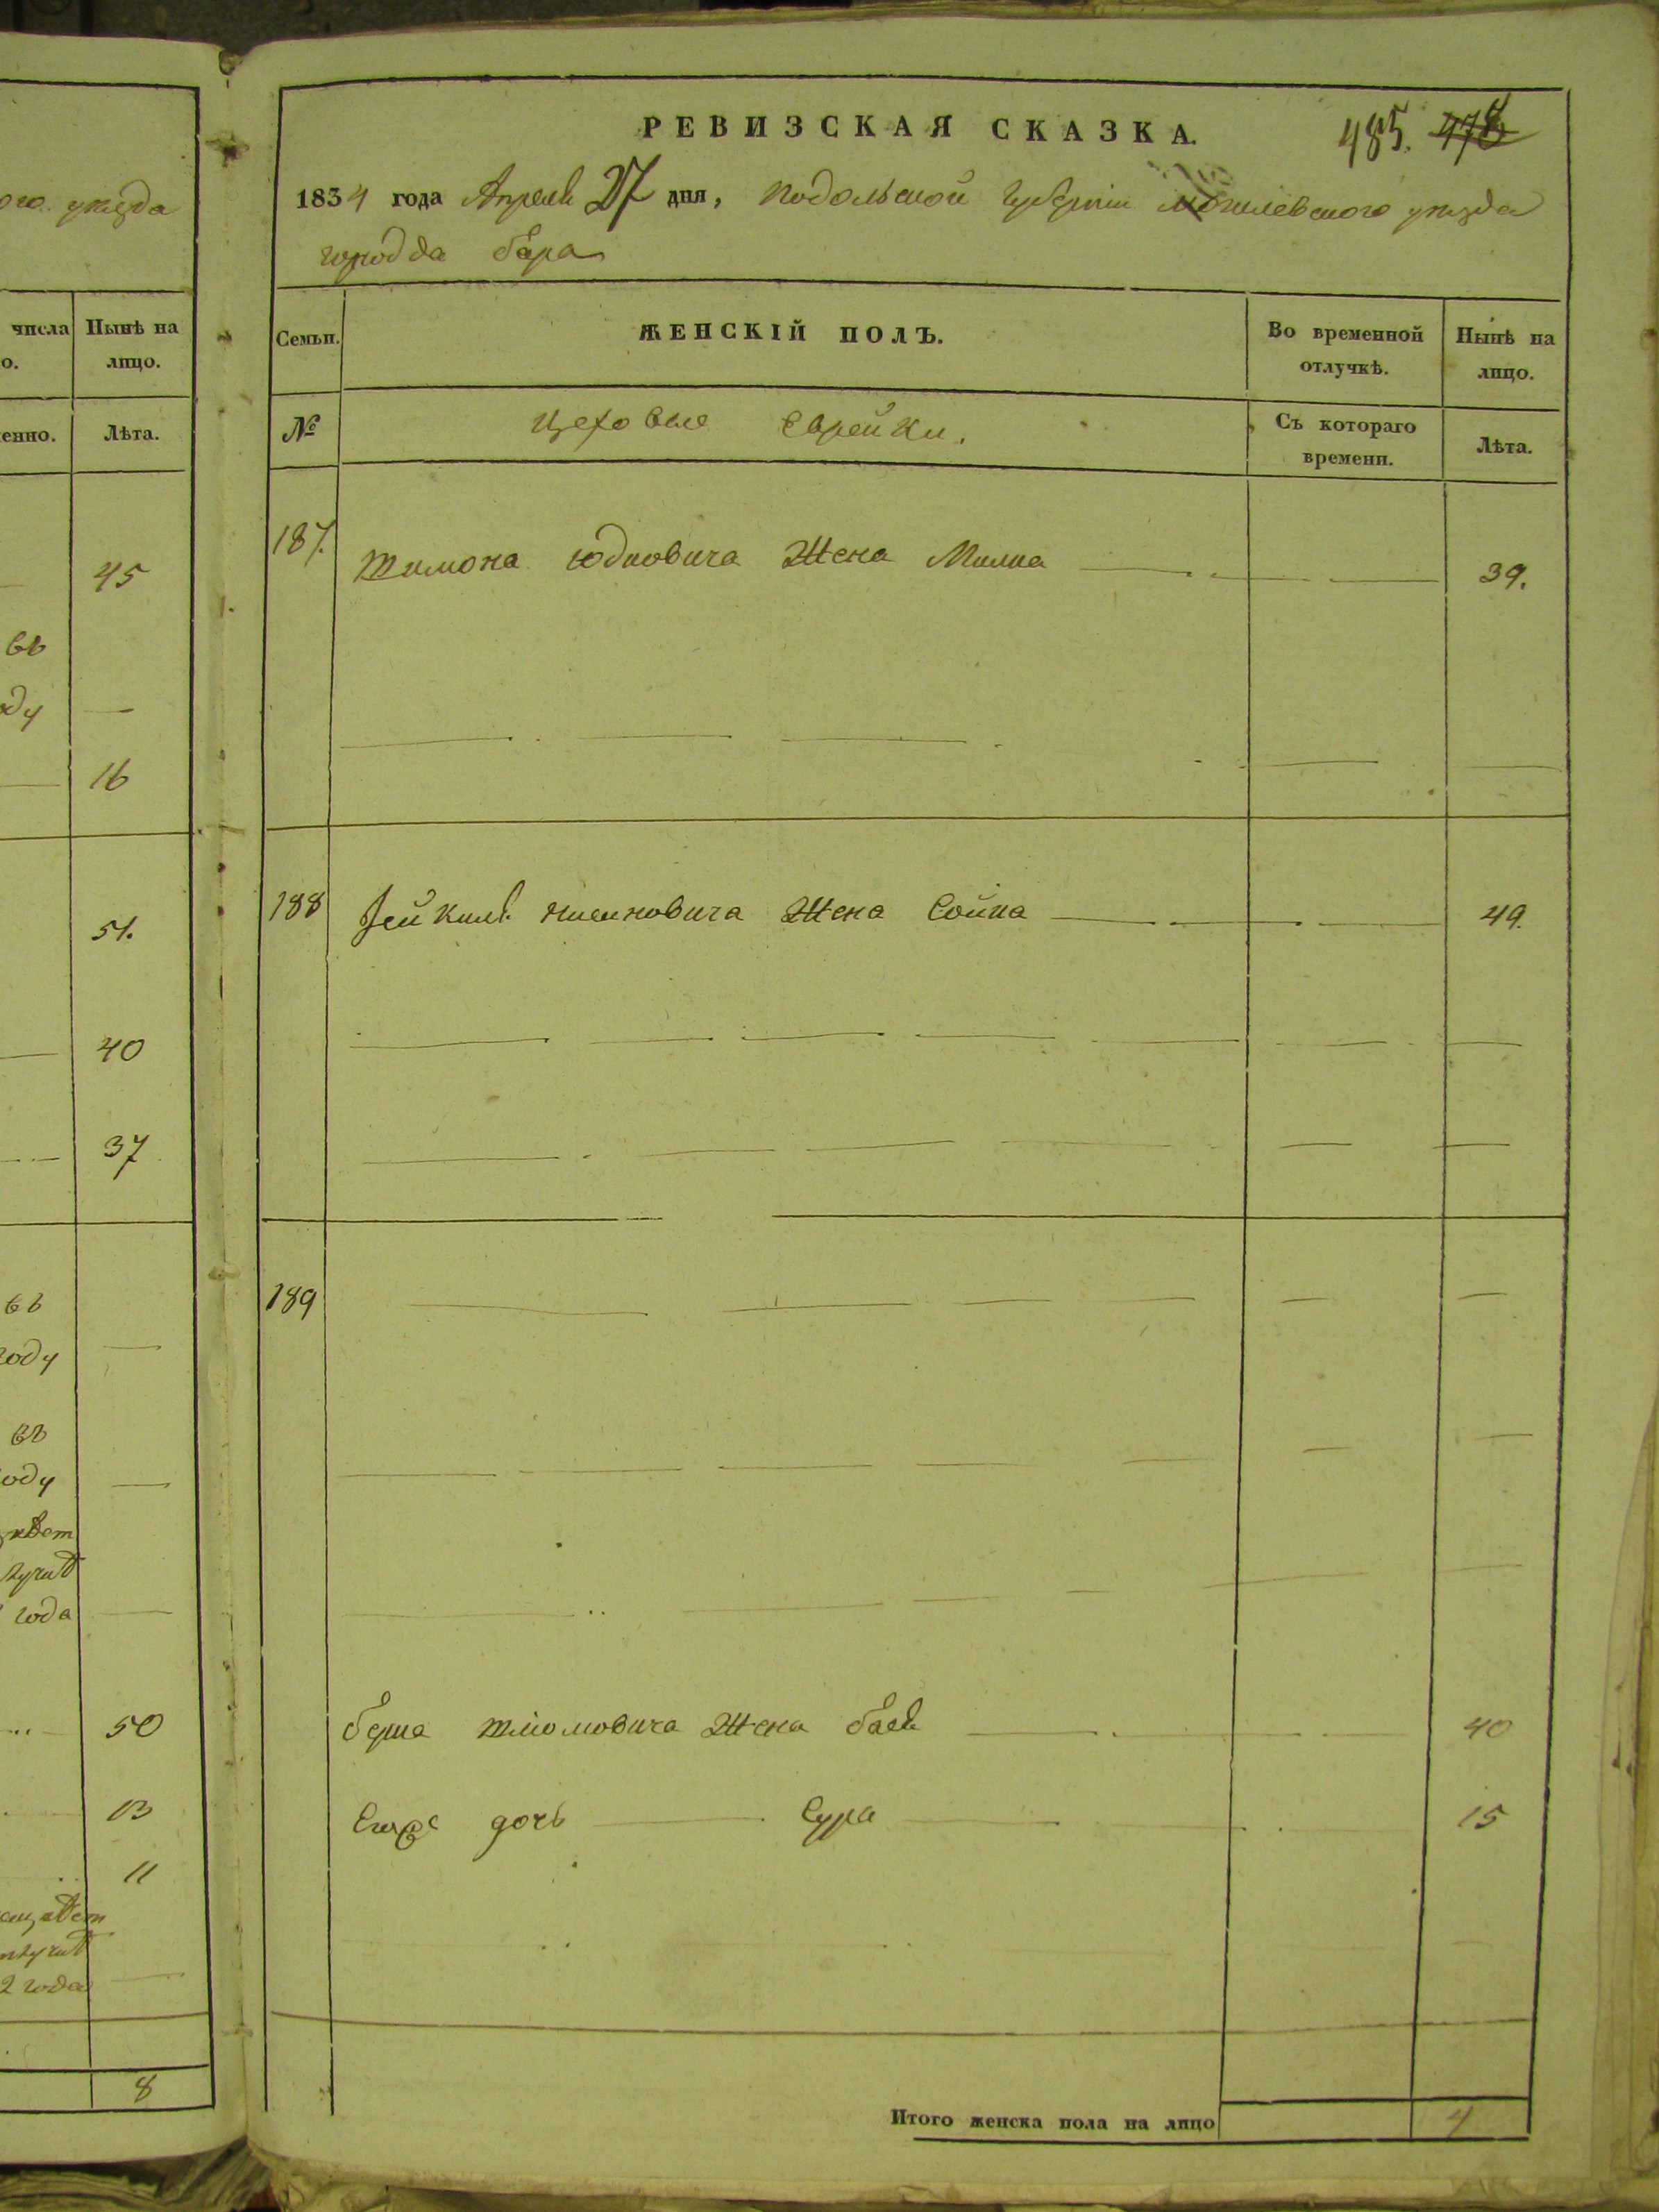 ого уезда
числа
о.
Нынѣ на
лицо.
енно.
Лѣта.
45
въ
оду
16
51.
40
37
въ
году
въ
оду
года
50
13
11
2 года
8
РЕВИЗСКАЯ СКАЗКА.
485. 478
1834 года Апреля 27 дня, Подольской Губерніи Могилевского уезда
городда бара
Семьи.
ЖЕНСКІЙ ПОЛЪ.
Во временной
отлучкѣ.
Нынѣ на
лицо.
№
Цеховые Еврейки.
Съ котораго
времени.
Лѣта.
187. Шлиома Юдковича Жена Милка 39.
188 Жена Сойка 49.
189
берка Шлиомовича Жена бася 40
дочь Сура 15
Итого женска пола на лицо 4